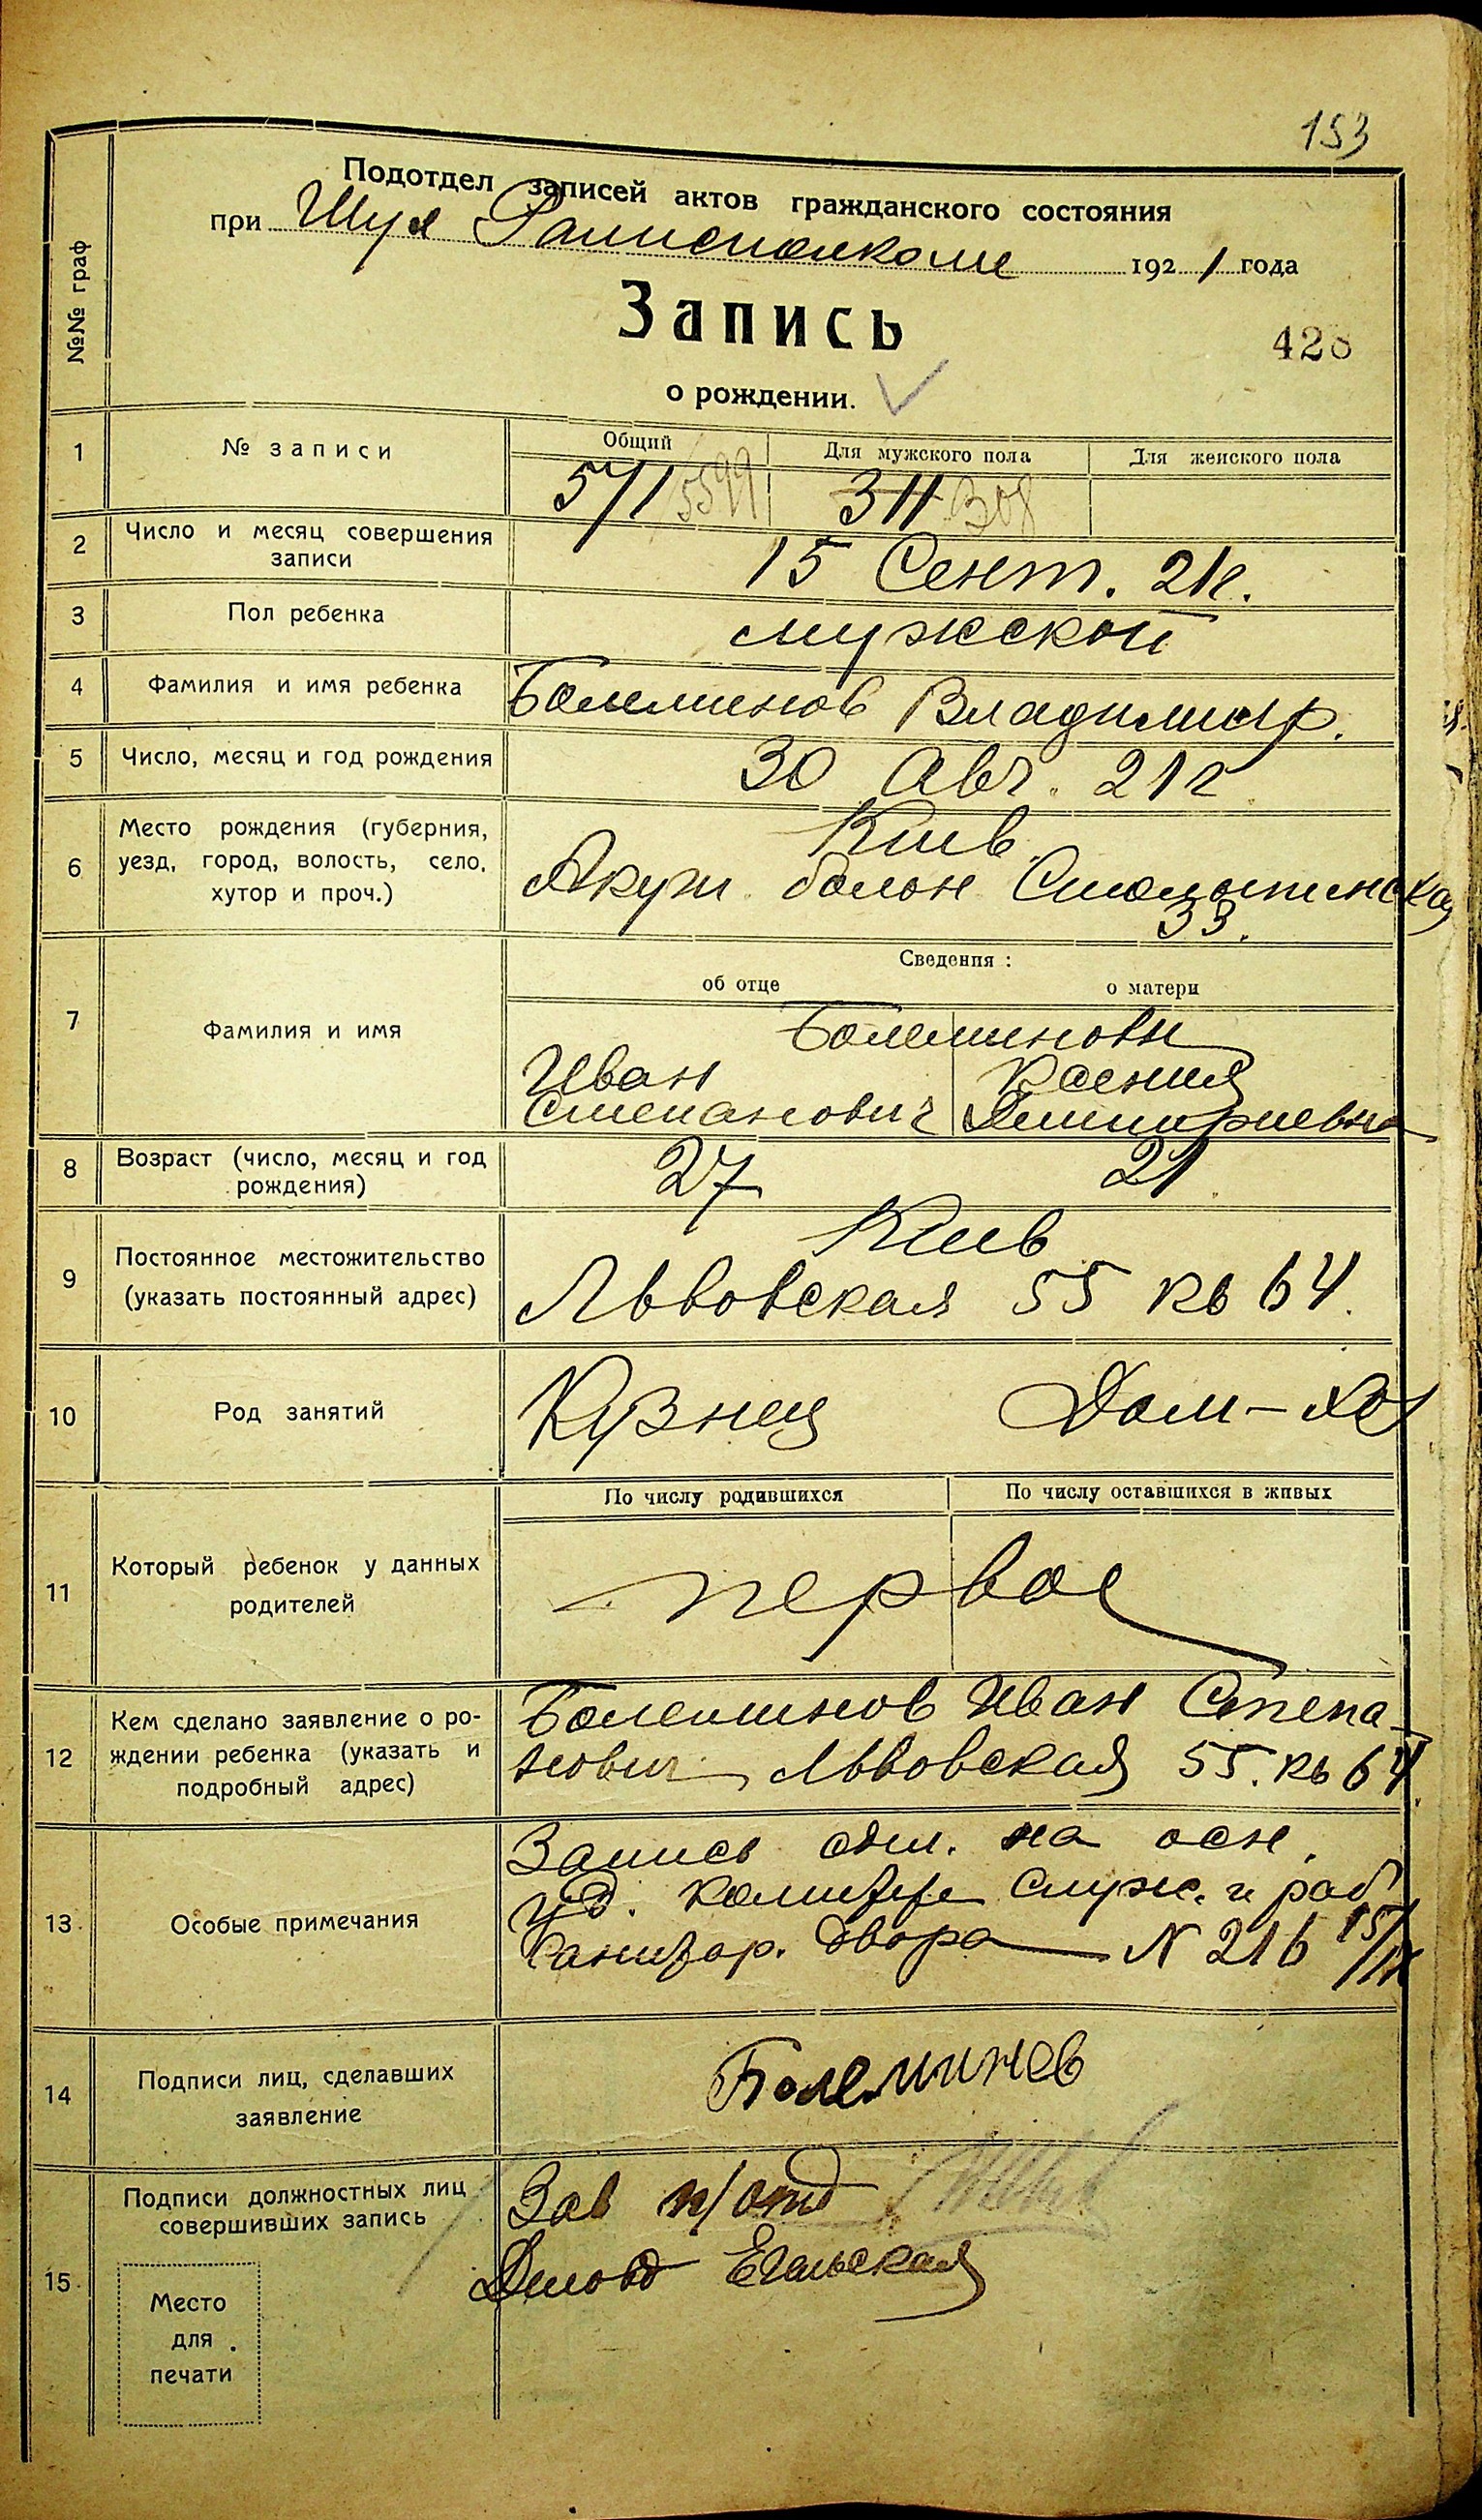 153
Подотдел записей актов гражданского состояния
при Шул Раписполкоме 1921 года
№№ граф
Запись
428
о рождении.
1 № записи
Общий Для мужского пола Для женского пола
571 5599 311 308
2 Число и месяц совершения
записи
15 Сент. 21г.
3 Пол ребенка мужской
4 Фамилия и имя ребенка Болеминов Владимир.
5 Число, месяц и год рождения 30 Авг. 21г.
6 Место рождения (губерния,
уезд, город, волость, село,
хутор и проч.)
Киев.
Акуш
33.
Сведения:
об отце о матери
7 Фамилия и имя
Болеминовы
Иван Ксения
Степанович Димитриевна
8 Возраст (число, месяц и год
рождения)
27 21
9 Постоянное местожительство
(указать постоянный адрес)
Киев
Львовская 55 кв 64.
10 Род занятий Кузнец Дом-хоз
По числу родившихся По числу оставшихся в живых
11 Который ребенок у данных
родителей
первое
12 Кем сделано заявление о ро-
ждении ребенка (указать и
подробный адрес)
Болеминов Иван Степа-
нович Львовская 55. кв 64.
13. Особые примечания
Запись сдел. на осн.
уд. комитета служ. и раб
Санитар. двора N 216 15/IX
14 Подписи лиц, сделавших
заявление
Болеминов
15. Подписи должностных лиц
совершивших запись
Зав п/отд
Делов
Место
для
печати